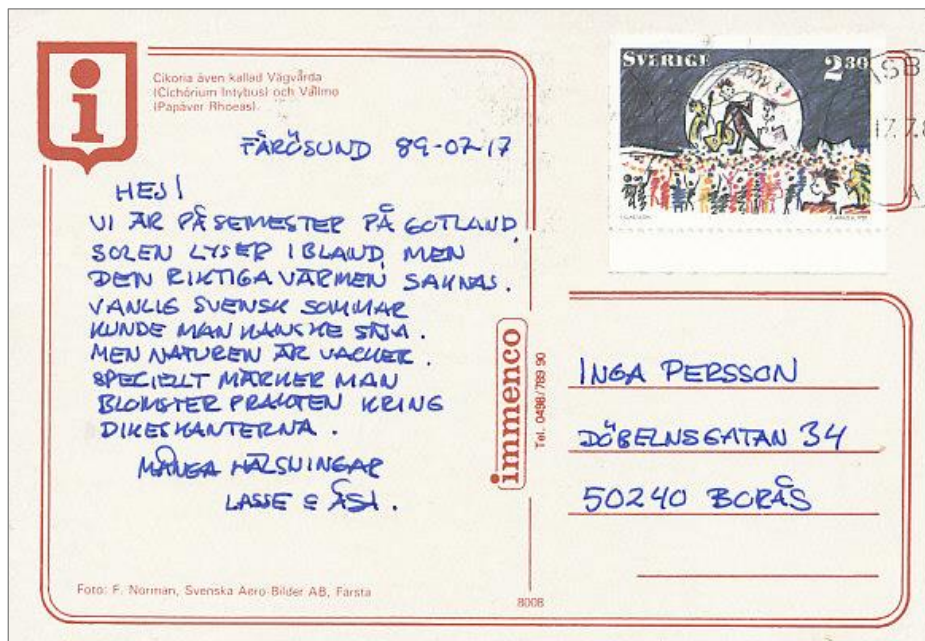 Cikoria även kallad Vägvårda
(Cichórium Intybus) och Vallmo
(Papáver Rhoeas).
FÅRÖSUND 89-07-17
HEJ!
VI ÄR PÅ SEMESTER PÅ GOTLAND.
SOLEN LYSER IBLAND, MEN
DEN RIKTIGA VÄRMEN SAKNAS.
VANLIG SVENSK SOMMAR
KUNDE MAN KANSKE SÄJA.
MEN NATUREN ÄR VACKER.
SPECIELLT MÄRKER MAN
BLOMSTER PRAKTEN KRING
DIKESKANTERNA.
MÅNGA HÄLSNINGAR
LASSE &
Foto: F. Norman, Svenska Aero-Bilder AB, Farsta
8008
immenco
Tel. 0498/789 90
SVERIGE 2.30
17.7.8
A
INGA PERSSON
DÖBELNSGATAN 34
50240 BORÅS